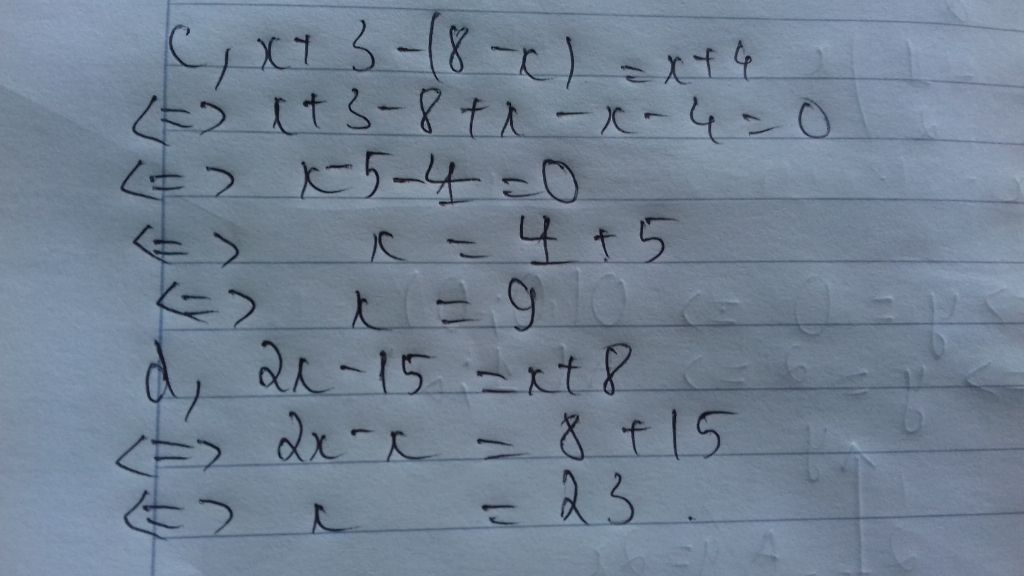 c, x+3-(8-x) = x+4
<=> x+3-8+x-x-4=0
<=> x-5-4=0
<=> x = 4+5
<=> x = 9
d, 2x-15 = x+8
<=> 2x-x = 8+15
<=> x = 23.